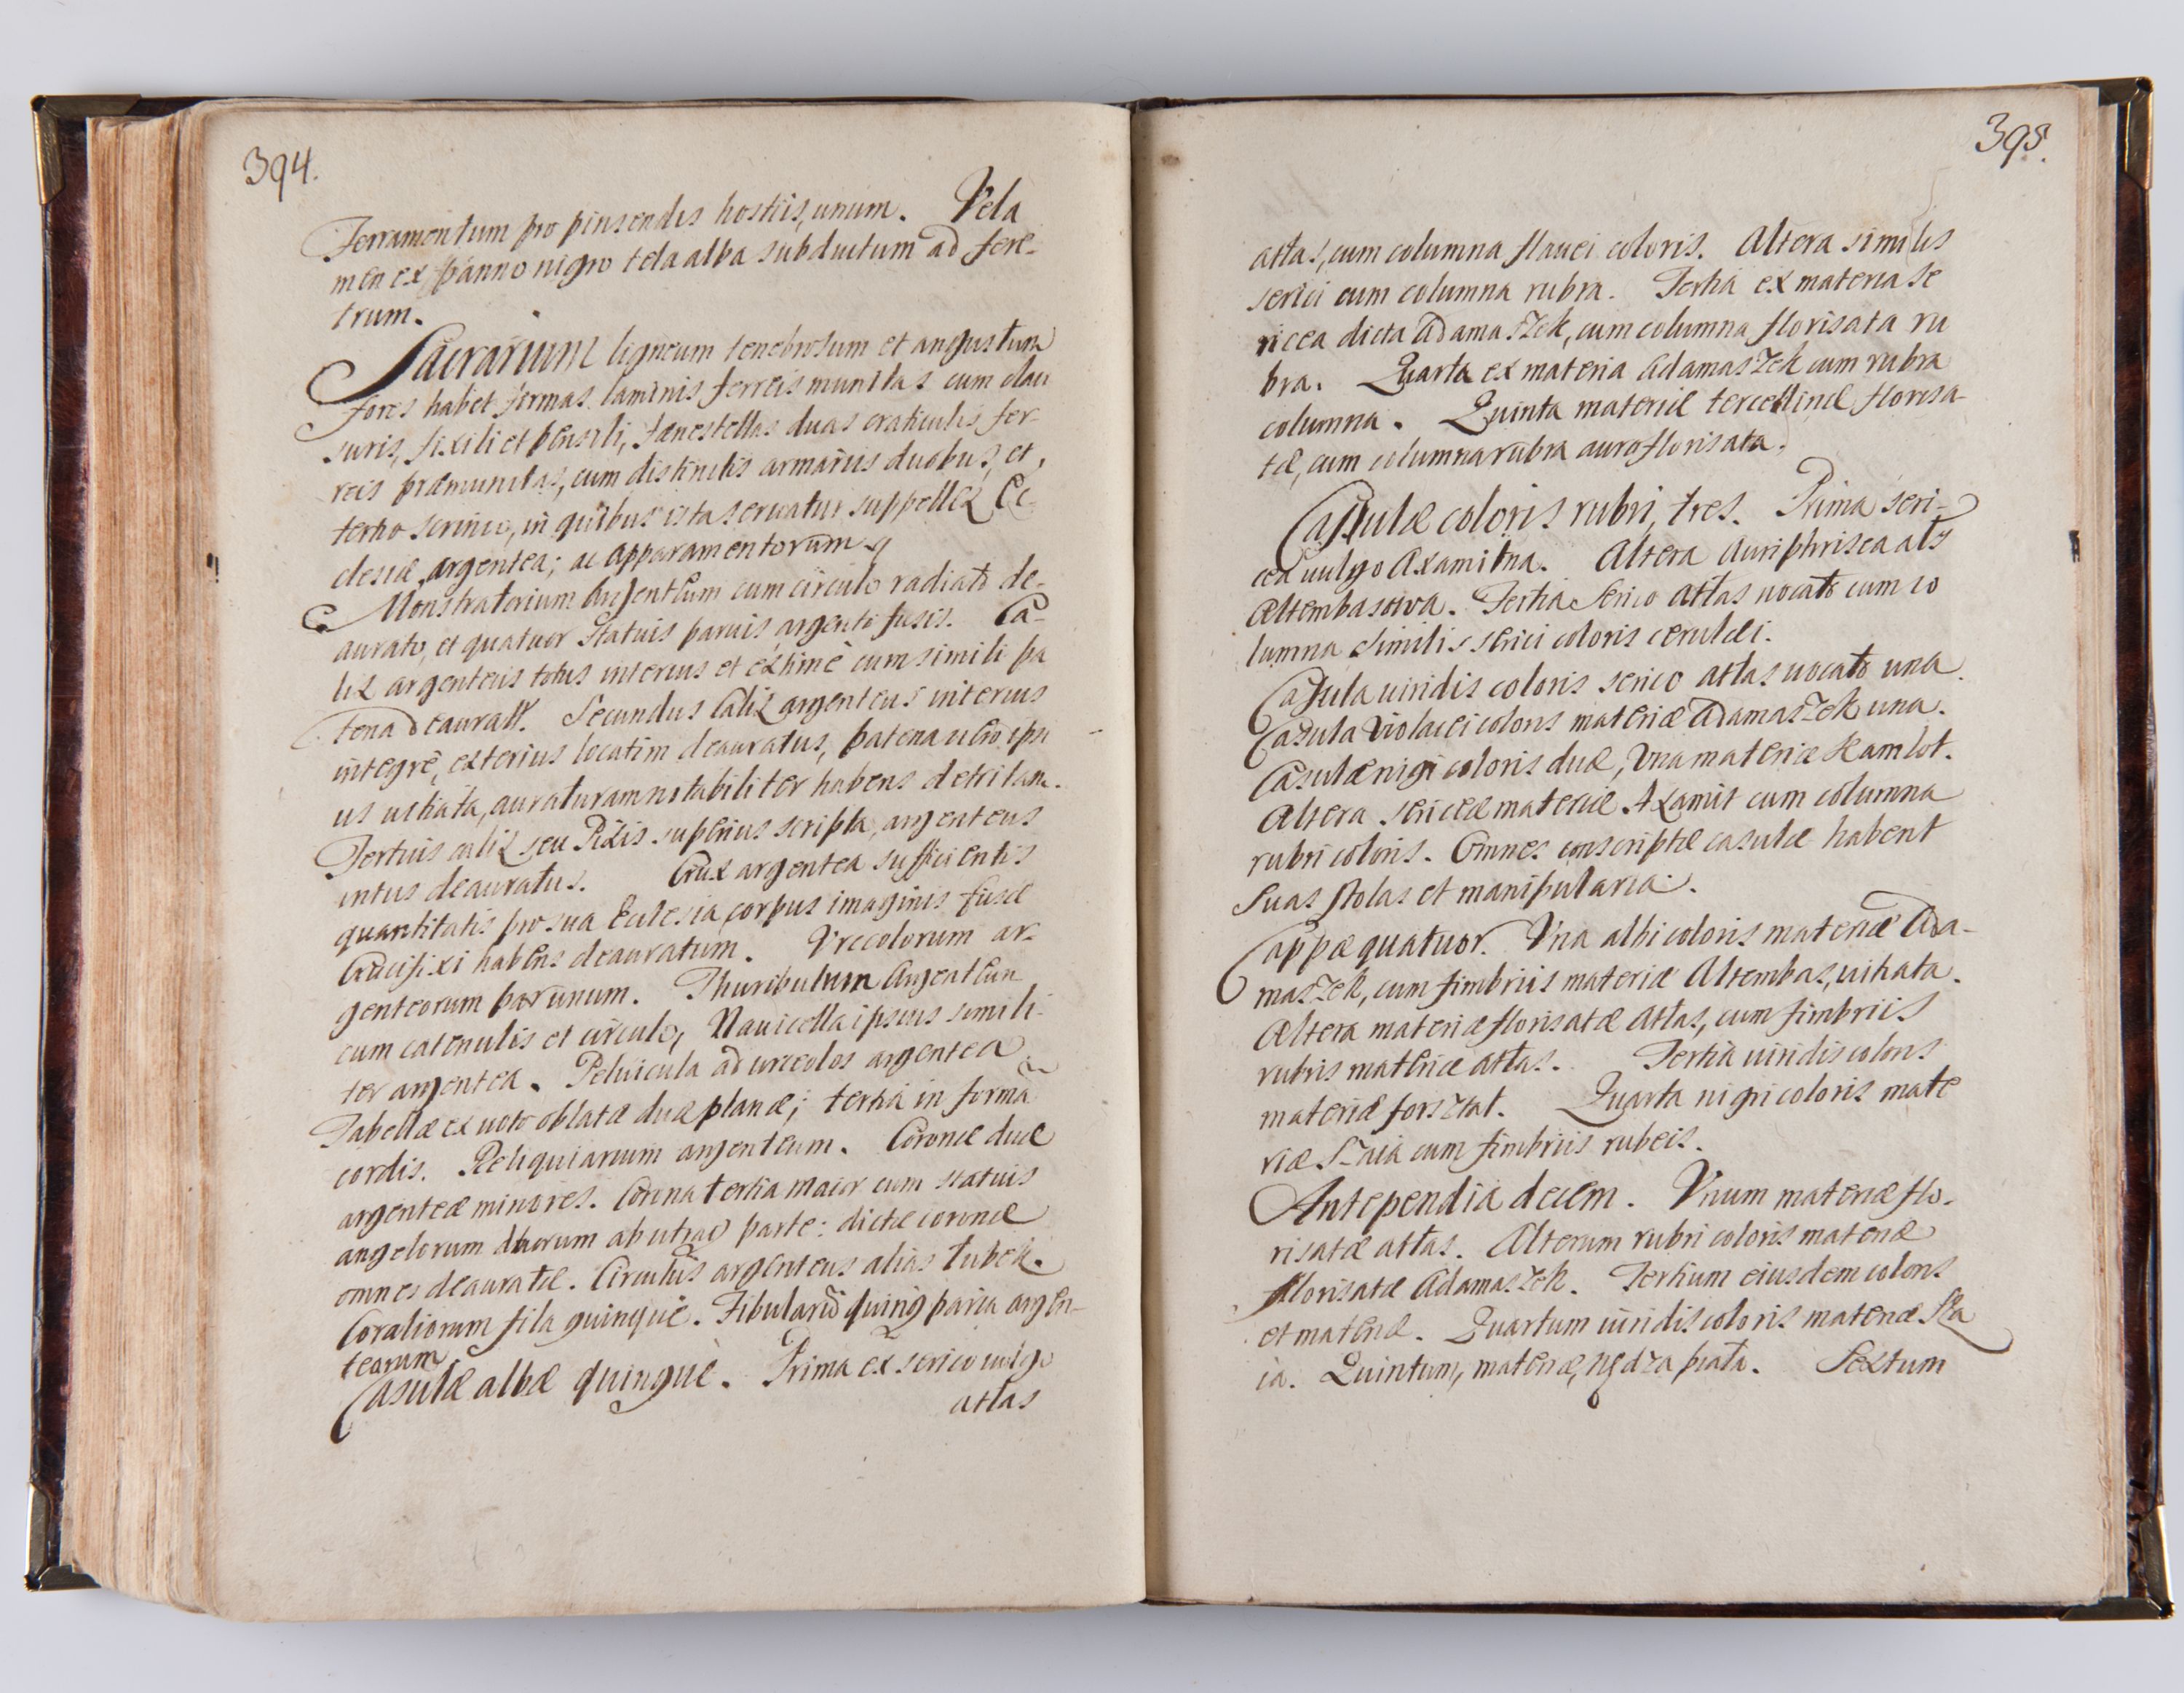 394.
Ferramentum pro pinsendis hostiis, unum. Vela
men ex panno nigro tela alba subductum ad fere-
trum.
Sacrarium ligneum tenebrosum et angustum
fores habet firmas laminis ferreis munitas cum clau
suris, fixili et pensili, fænestellas duas craticulis fer-
reis præmunitas, cum distinctis armarijs duobus, et
tertio scrinio, in quibus ista seruatur suppellex Ec-
clesiæ argentea; ac apparamentorum
Monstratorium Argenteum cum circulo radiato de-
aurato, et quatuor statuis paruis argento fusis. Ca-
lix argenteus totus interius et extimè cum simili pa
tena deaurat9. Secundus Calix argenteus interius
integrè, exterius locatim deauratus, patena uero ipsi
us uitiata, auraturam notabiliter habens detritam.
Tertius calix seu Pixis superius scripta, argenteus
intus deauratus. Crux argentea sufficientis
quantitatis pro sua Ecclesia, corpus imaginis fusæ
Crucifixi habens deauratum. Vrceolorum ar-
genteorum par unum. Thuribulum Argenteum
cum catenulis et circulo, Nauicella ipsius simili-
ter argentea. Peluicula ad urceolos argentea
Tabellæ ex uoto oblatæ duæ planæ; tertia in forma
cordis. Reliquiarium argenteum. Coronæ duæ
argenteæ minores. Corona tertia maior cum statuis
angelorum duorum ab utraq parte: dictæ coronæ
omnes deauratæ. Circulus argenteus alias tubek.
Coraliorum fila quinque. Fibularū quinq paria argen-
teorum
Casulæ albæ quinque. Prima ex serico uulgo
atlas
395.
atlas, cum columna flauei coloris. Altera similis
serici cum columna rubra. Tertia ex materia se
ricea dicta Adamaszek, cum columna florisata ru
bra. Quarta ex materia Adamaszek cum rubra
columna. Quinta materiæ tercellinæ florisa-
tæ, cum columna rubra auro florisata.
Casulæ coloris rubri, tres. Prima seri-
cea uulgo Axamitna. Altera Auriphrisea als
Altembasowa. Tertia Serico atlas uocato cum co
lumna similis serici coloris cerulei.
Casula uiridis coloris serico atlas uocato una.
Casula Violacei coloris materiæ Adamaszek una.
Casulæ nigri coloris duæ, Vna materiæ Kamlot.
Altera sericeæ materiæ Axamit cum columna
rubri coloris. Omnes conscriptæ casulæ habent
Suas stolas et manipularia.
Cappæ quatuor. Vna albi coloris materiæ Ada-
maszek, cum fimbriis materiæ Altembas, uitiata.
Altera materiæ florisatæ Atlas, cum fimbriis
rubris materiæ atlas. Tertia uiridis coloris
materiæ forsztat. Quarta nigri coloris mate
riæ Szaia cum fimbriis rubeis.
Antependia decem. Vnum materiæ flo-
risatæ atlas. Alterum rubri coloris materiæ
florisatæ Adamaszek. Tertium eiusdem coloris
et materiæ. Quartum uiridis coloris materiæ Sza
ia. Quintum, materiæ, Sextum